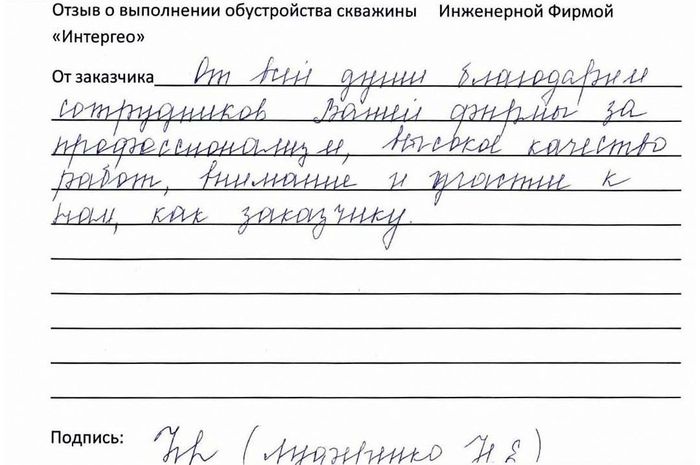 Отзыв о выполнении обустройства скважины Инженерной Фирмой
«Интергео»
От заказчика От всей души благодарим
сотрудников Вашей фирмы за
профессионализм, высокое качество
работ, внимание и участие к
нам, как заказчику.
Подпись: Н.Е)